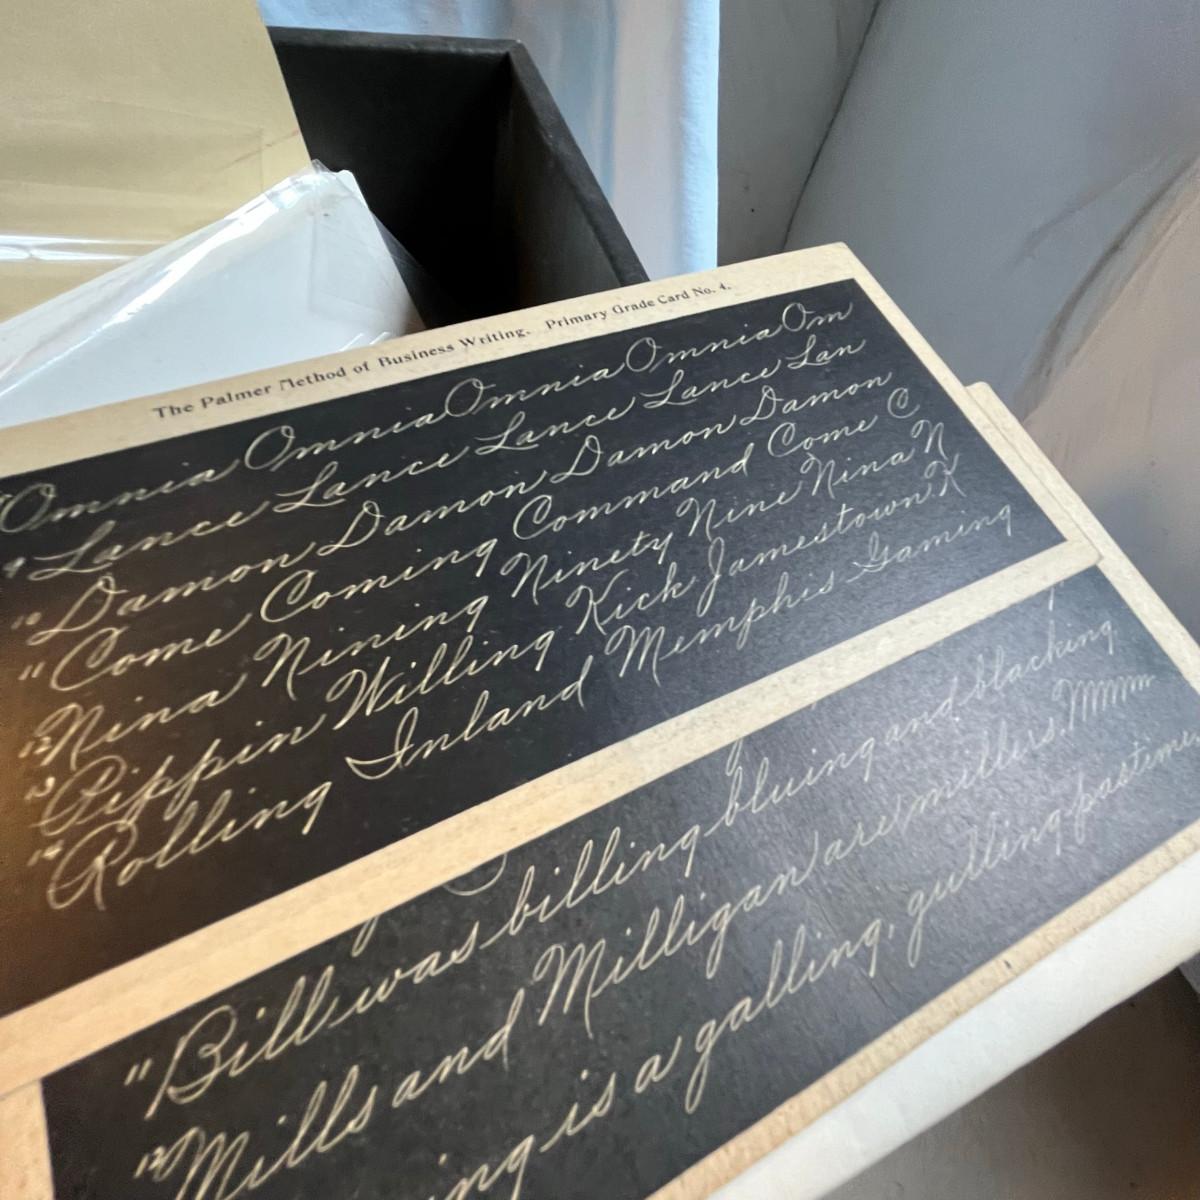 The Palmer Method of Business Writing. Primary Grade Card No. 4.
Omnia Omnia Omnia Om
9 Lance Lance Lance Lance Lan
10 Damon Damon Damon Damon
11 Come Coming Command Come C
12 Nina Nining Ninety Nine Nina N
13 Pippin Willing Kick Jamestown K
14 Rolling Inland Memphis Gaming
11 Bill was billing bluing and blacking
12 Mills and Milligan are millers. Mmm
ing is a galling, gulling pastime